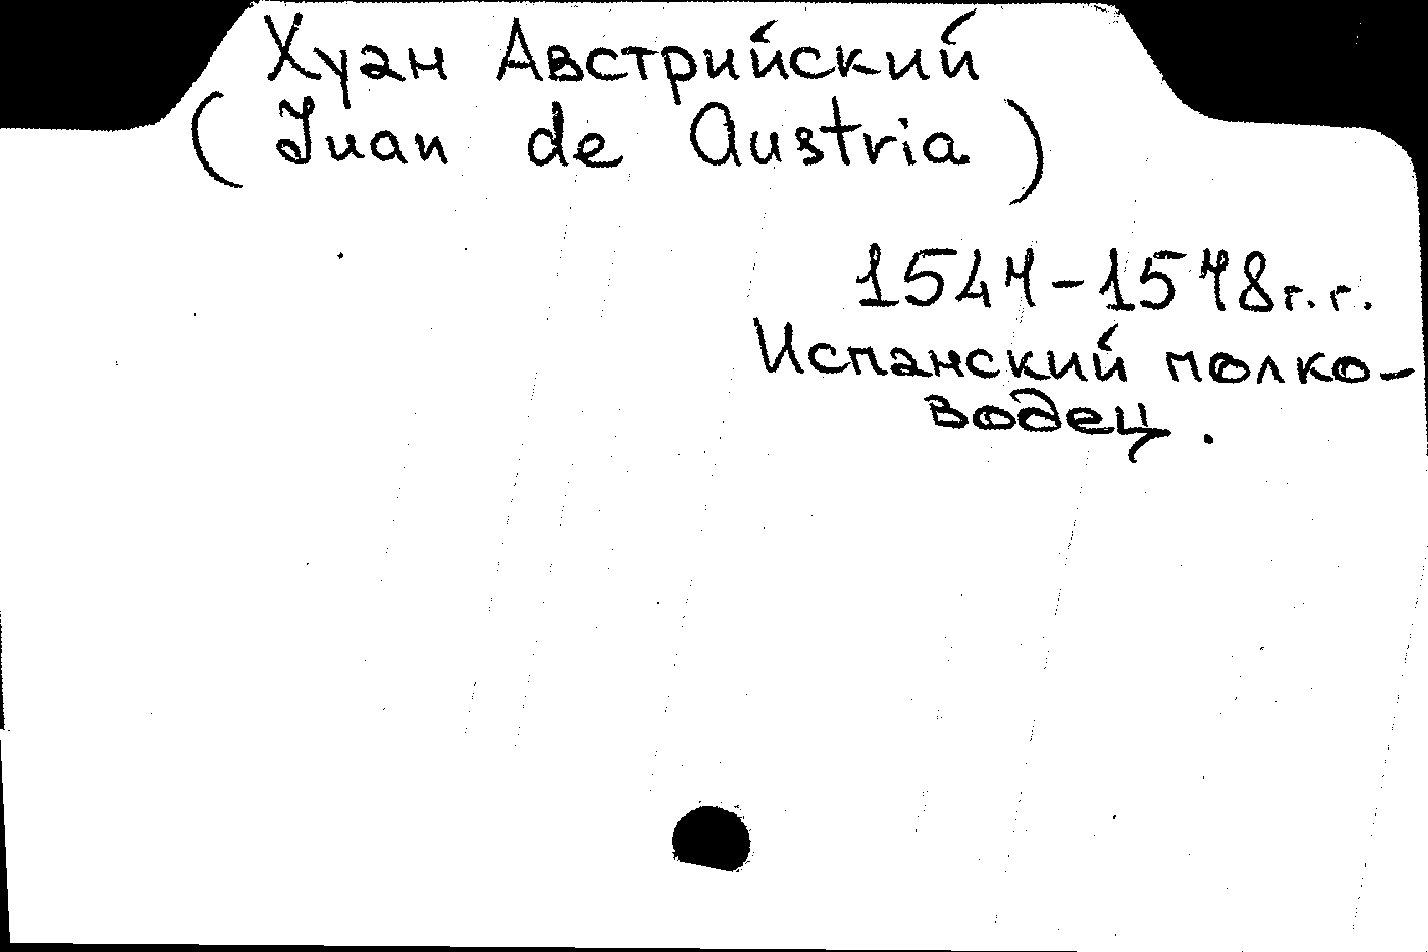 Хуан Австрийский
(Juan de Austria)
1547-1578г.г.
Испанский полко-
водец.